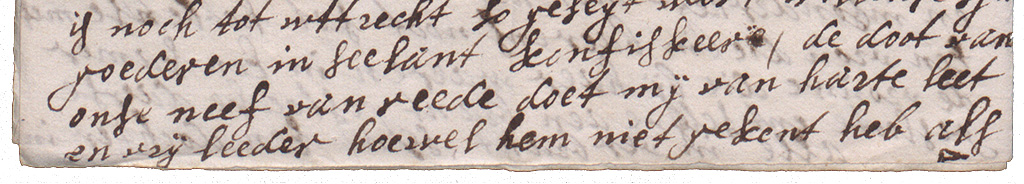 is noch tot uttrecht so geseyt wort
goederen in seelant konfiskeere, de doot van
onse neef van reede doet mÿ van harte leet
en vrÿ leeder hoewel hem niet gekent heb als